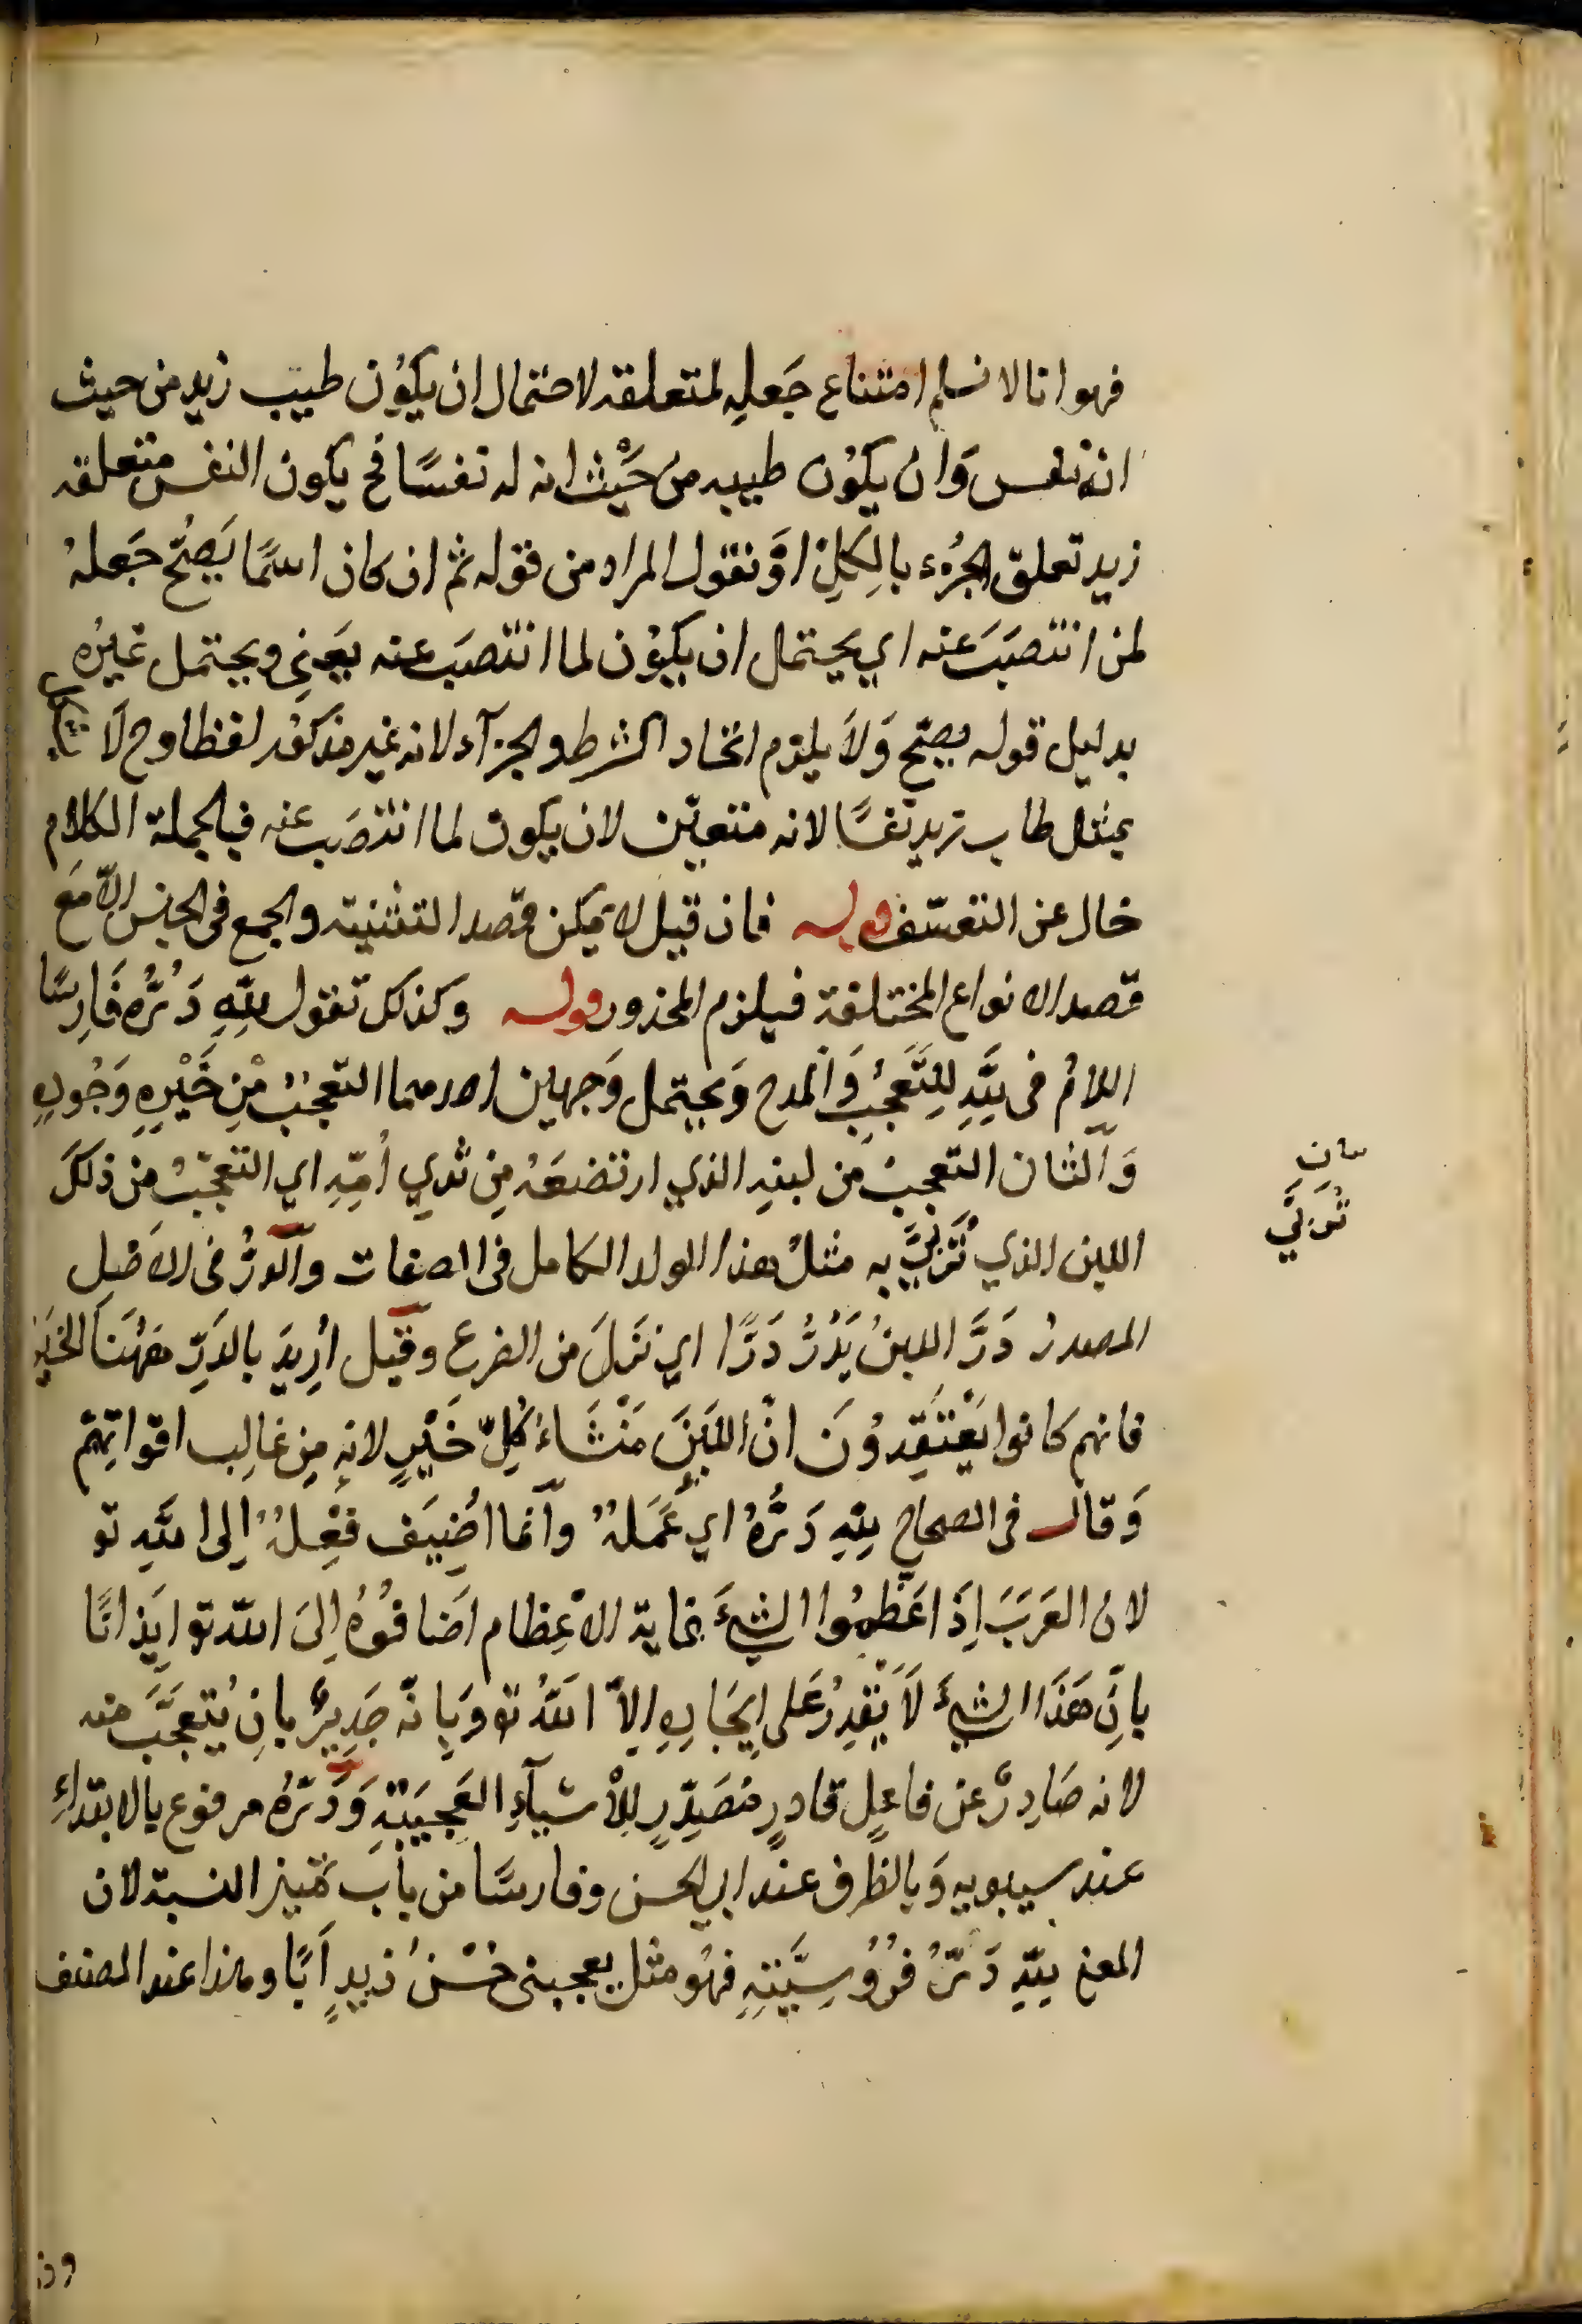 فهو انا لا نسلم امتناع جَعلِه لمتعلقه لاحتمال ان يكوُن طيب زيد من حيث
انه نفس وَان يكوُن طيبه من حَيْث انه له نفسًا فح يكون النفس متعلقه
زيد تعلق الجُزء بالكِلِ اوَ نقول المراد من قوله ثم ان كان اسمًا يَصُحّ جَعلهُ
لمن انتصَبَ عنه اي يحتمل ان يكوُن لما انتصَبَ عنه يَعنِي ويحتمل غيرُه
بدليل قوله يصحّ وَلاَ يلزم اتحاد الشرط والجزآء لانه غير مذكوُر لفظا وح لَا
بمثل طاب زيد نفسًا لانه متعيّن لان يكون لما انتصَب عنه فبالجملة الكلام
خال عن التعسّف قوله فان قيل لا يمكن قصد التثنية والجمع فى الجنس الاّ مَع
قصد الانواع المختلفة فيلزم المحذور قوله وكذلك تقول للهِ دَرُّه فَارِسًا
اللامُ فى للهِ للِتَّعَجُبِ وَالمدح وَيحتمل وَجهين احدهما التعجبُ مِنْ خَيْرِهِ وَجُودِهِ
وَالثان التعجبُ من لبنهِ الذي ارتضعَهُ مِن ثدي اُمّهِ اي التعجّبُ من ذلكَ
اللبن الذي تُرَبِّيَ به مثلُ هذا الولد الكامل فى الصفات والدَرُّ فى الاَصْلِ
المصدرُ دَرَّ اللبنُ يَدُرُّ دَرًّا اي نَزَلَ من الضرعِ وقيل اُرِيدَ بالدَرِّ هَهُنَا الخَيْر
فانهم كانوا يَعْتَقِدوُنَ انّ اللبَنَ مَنْشَاءُ كُلِّ خَيْرٍ لانهِ مِن غالِب اقواتِهِم
وَقال فى الصحاح للهِ دَرُّهُ اي عَمَلهُ وانما اُضِيَف فِعْلهُ اِلى اللهِ تو
لان العَرَبَ اِذَا عَظَّموُا الشيءَ غاية الاعْظِام اَضافوُهُ اِلىَ الله تو اِيذانًا
بانّ هَذا الشيءَ لاَ يَقدِرُ عَلى اِيجَادِهِ اِلاّ اللهُ تو وَبِانّه جَدِيرٌ بانِ يُتعَجَّبَ منه
لانه صَادِرٌ عن فاعلٍ قادرٍ مُصَدِّرٍ لِلاْشيآءِ العَجِيبَةِ وَدَرّهُ مرفوع بالابتداءِ
عند سيبويه وَبالظرف عند ابي الحسن وفارسًا من باب تمييز النسبة لان
المعنى للهِ دَرُّ فرُوُسِيَّتِهِ فهُو مثل يعجبنى حُسْنُ زيدٍ اَبًا وهذا عند المصنف